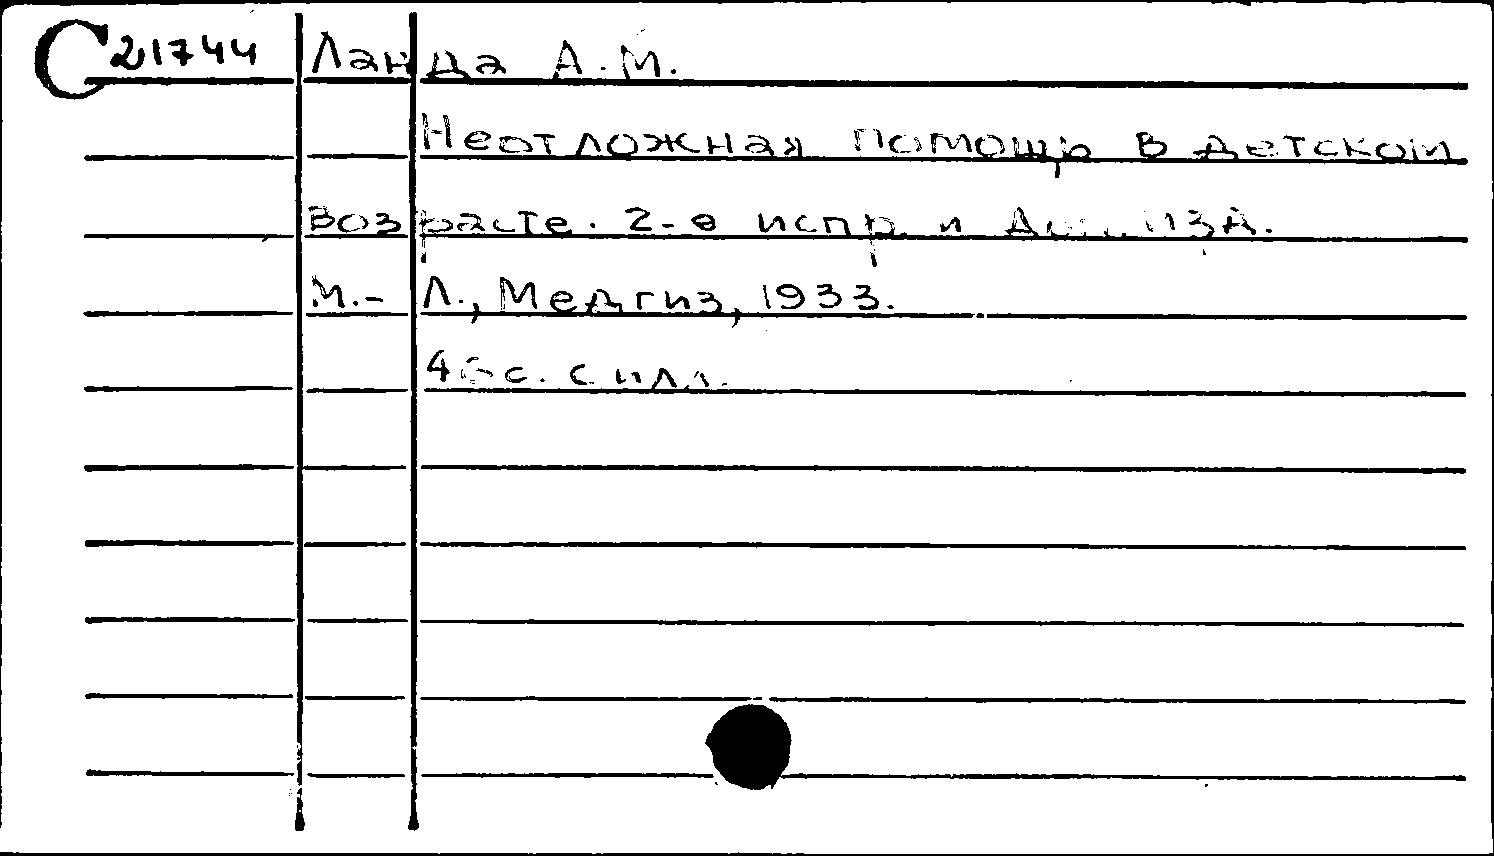 С 21744 Ланда А.М.
Неотложная помощь в детском
возрасте. 2-е испр. и изд.
М.-Л., Медгиз, 1933.
с. с илл.